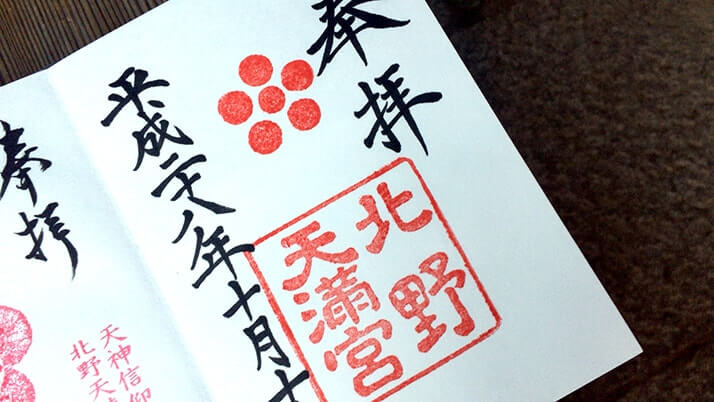 奉拝
北野
天満宮
平成二十八年十月十
奉拝
天神信仰
北野天